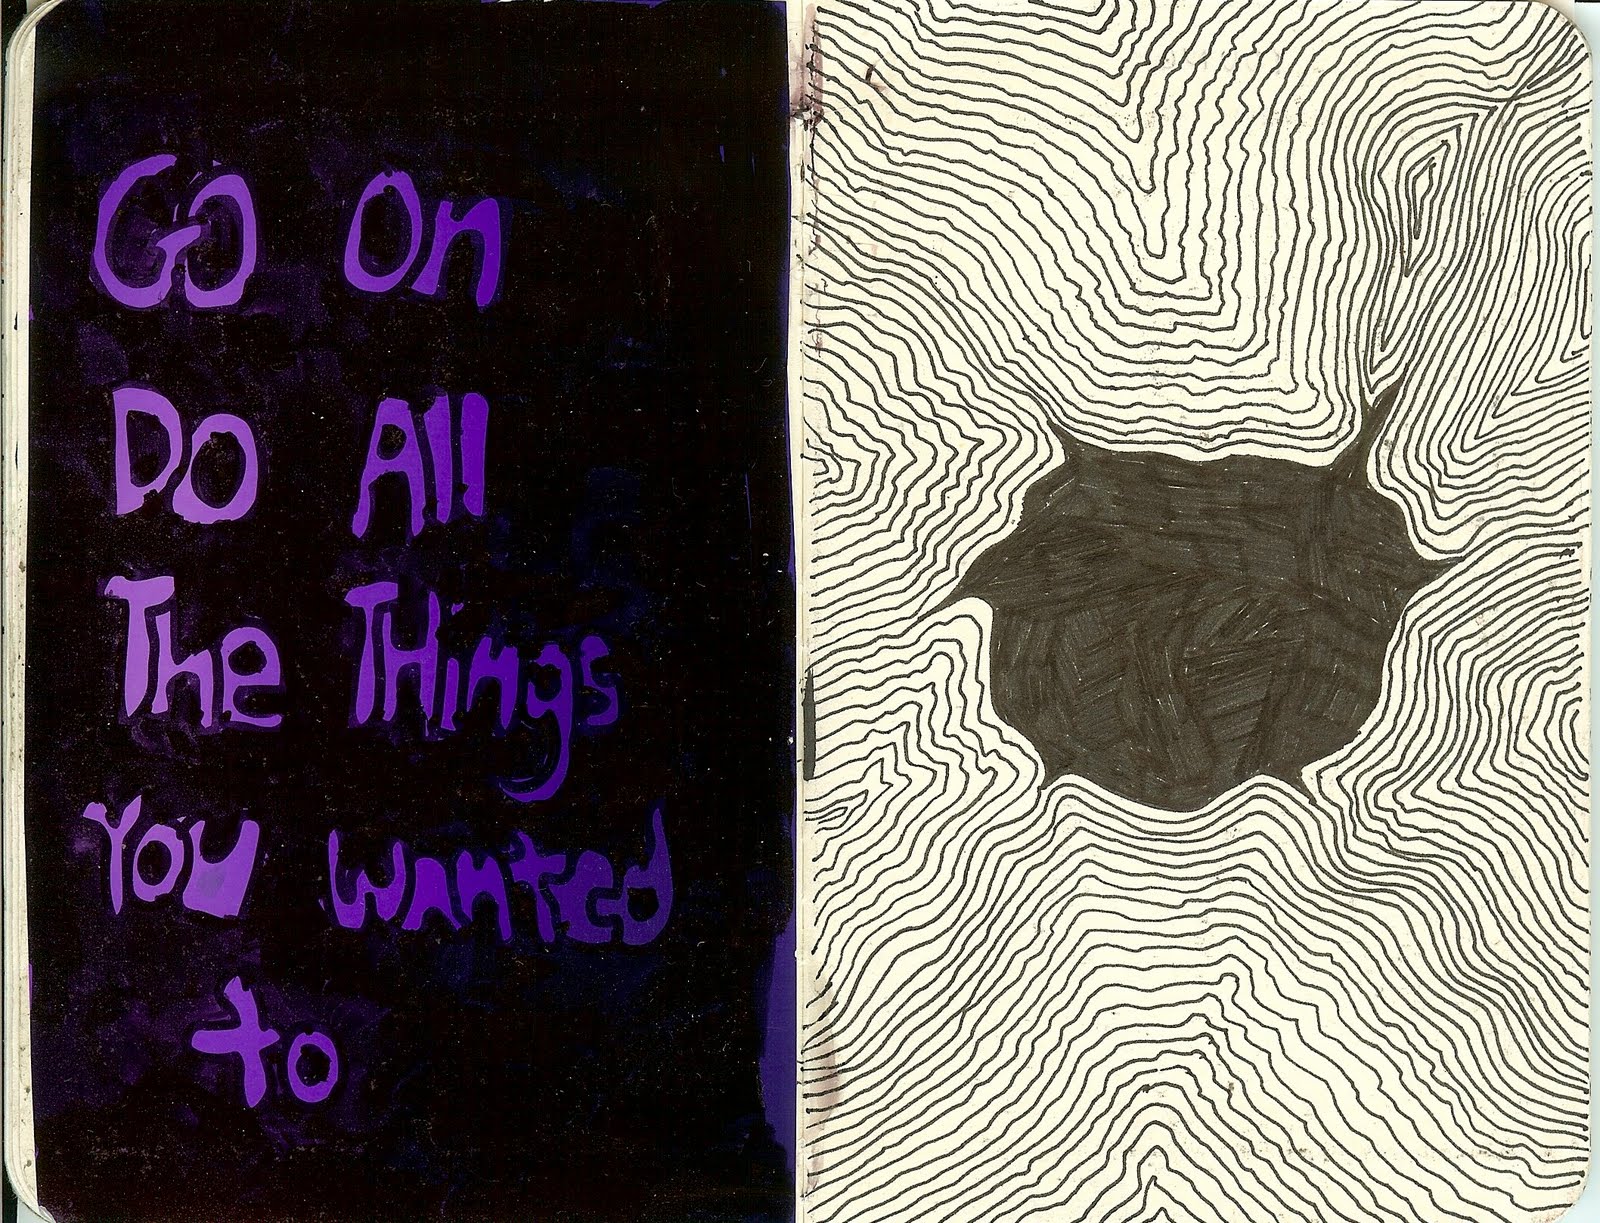 Go On
Do All
The THings
You wanted
to